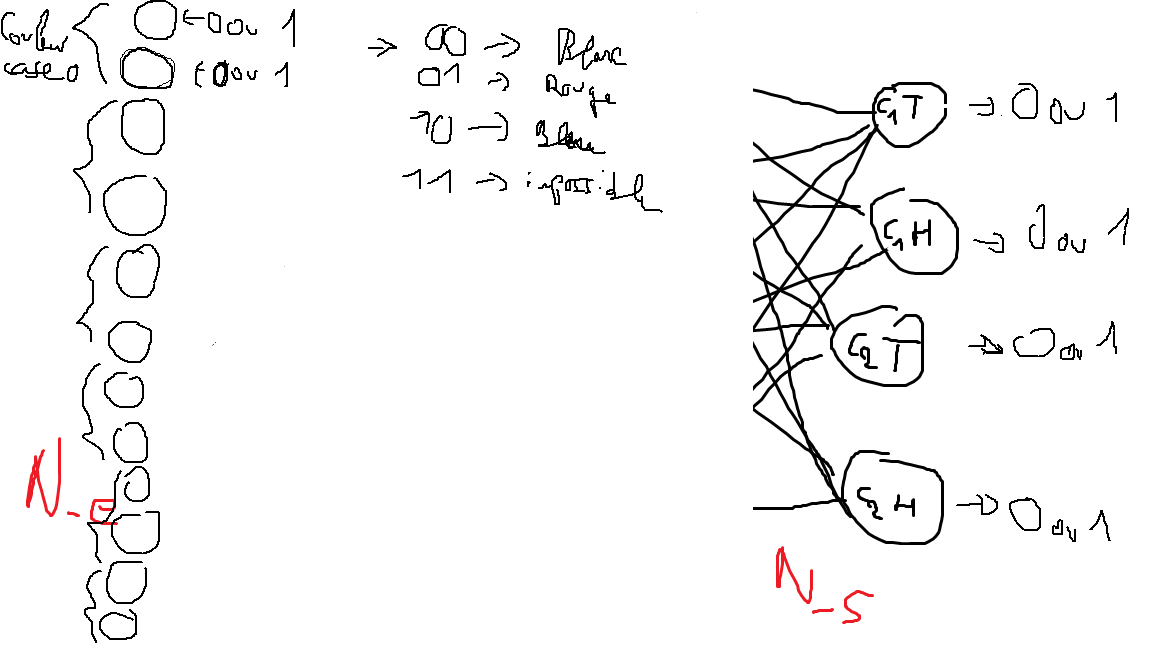 Couleur
case 0
← 0 ou 1
← 0 ou 1
→ 00 → Blanc
01 → Rouge
10 → Bleu
11 → impossible
C1T → 0 ou 1
C1H → 0 ou 1
C2T → 0 ou 1
C2H → 0 ou 1
N_e
N_S